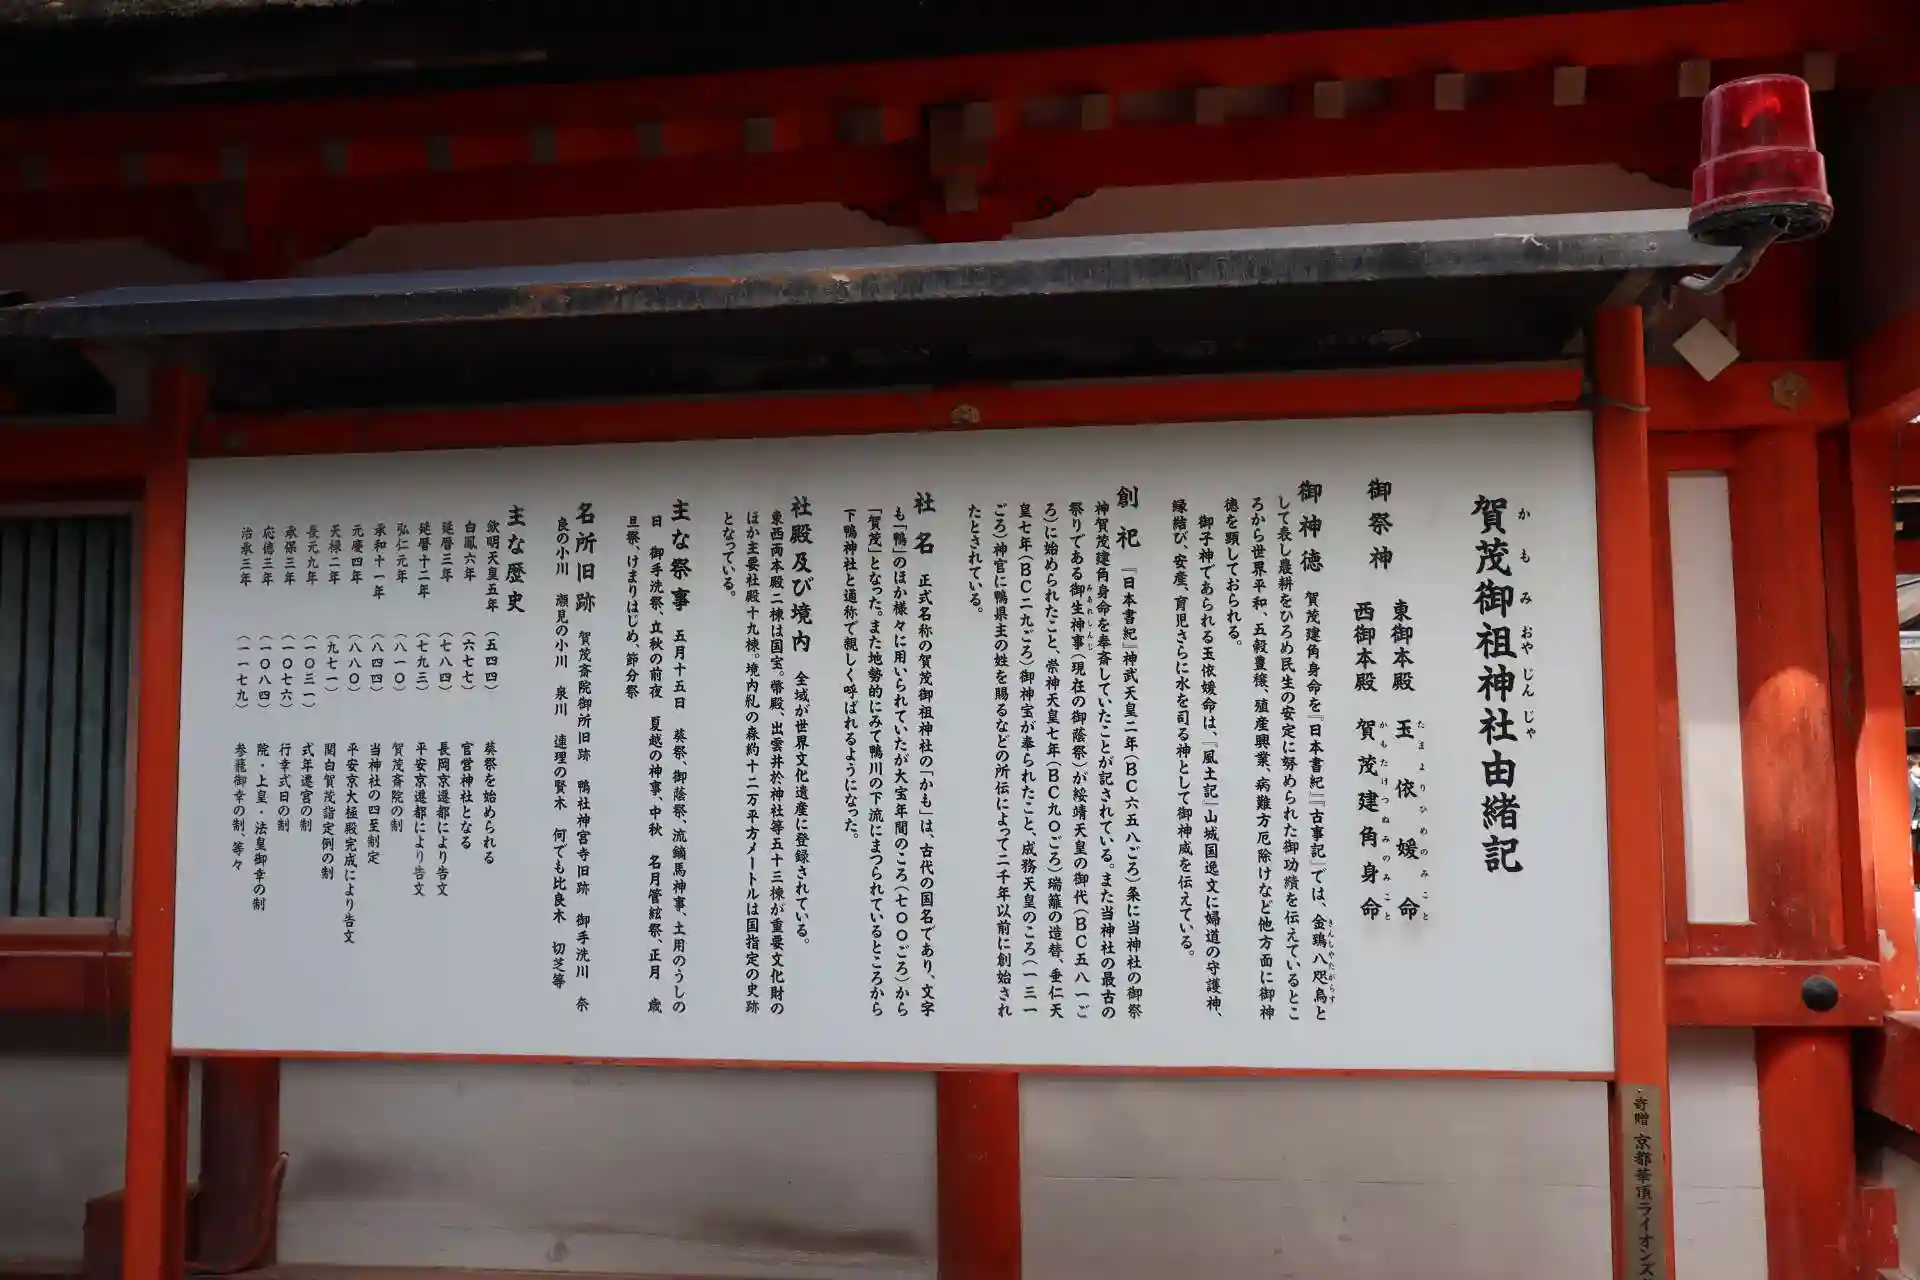 賀茂御祖神社由緒記
かもみおやじんじゃ
御祭神
東御本殿 玉依媛命
たまよりひめのみこと
西御本殿 賀茂建角身命
かもたけつぬみのみこと
御神徳 賀茂建角身命を『日本書紀』『古事記』では、金鵄八咫烏と
きんしやたがらす
して表し農耕をひろめ民生の安定に努められた御功績を伝えているとこ
ろから世界平和、五穀豊穣、殖産興業、病難方厄除けなど他方面に御神
徳を顕しておられる。
御子神であられる玉依媛命は、『風土記』山城国逸文に婦道の守護神、
縁結び、安産、育児さらに水を司る神として御神威を伝えている。
創祀 『日本書紀』神武天皇二年(BC六五八ごろ)条に当神社の御祭
神賀茂建角身命を奉斎していたことが記されている。また当神社の最古の
祭りである御生神事(現在の御蔭祭)が綏靖天皇の御代(BC五八一ご
みあれしんじ
ろ)に始められたこと、崇神天皇七年(BC九〇ごろ)瑞籬の造替、垂仁天
皇七年(BC二九ごろ)御神宝が奉られたこと、成務天皇のころ(一三一
ごろ)神官に鴨県主の姓を賜るなどの所伝によって二千年以前に創始され
たとされている。
社名 正式名称の賀茂御祖神社の「かも」は、古代の国名であり、文字
も「鴨」のほか様々に用いられていたが大宝年間のころ(七〇〇ごろ)から
「賀茂」となった。また地勢的にみて鴨川の下流にまつられているところから
下鴨神社と通称で親しく呼ばれるようになった。
社殿及び境内 全域が世界文化遺産に登録されている。
東西両本殿二棟は国宝。幣殿、出雲井於神社等五十三棟が重要文化財の
ほか主要社殿十九棟。境内糺の森約十二万平方メートルは国指定の史跡
となっている。
主な祭事 五月十五日 葵祭、御蔭祭、流鏑馬神事、土用のうしの
日 御手洗祭、立秋の前夜 夏越の神事、中秋 名月管絃祭、正月 歳
旦祭、けまりはじめ、節分祭
名所旧跡 賀茂斎院御所旧跡 鴨社神宮寺旧跡 御手洗川 奈
良の小川 瀬見の小川 泉川 連理の賢木 何でも比良木 切芝等
主な歴史
欽明天皇五年 (五四四) 葵祭を始められる
白鳳六年 (六七七) 官営神社となる
延暦三年 (七八四) 長岡京遷都により告文
延暦十二年 (七九三) 平安京遷都により告文
弘仁元年 (八一〇) 賀茂斎院の制
承和十一年 (八四四) 当神社の四至制定
元慶四年 (八八〇) 平安京大極殿完成により告文
天禄二年 (九七一) 関白賀茂詣定例の制
長元九年 (一〇三一) 式年遷宮の制
承保三年 (一〇七六) 行幸式日の制
応徳三年 (一〇八四) 院・上皇・法皇御幸の制
治承三年 (一一七九) 参籠御幸の制、等々
寄贈 京都華頂ライオンズ